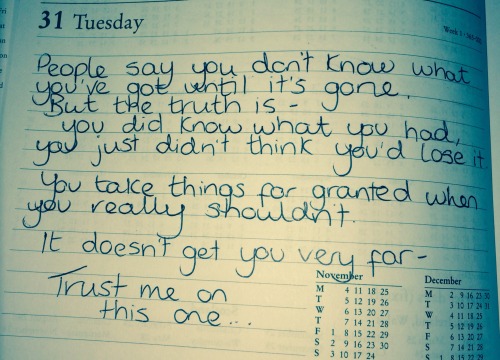 31 Tuesday
People say you don't know what
you've got until it's gone.
But the truth is -
you did know what you had,
you just didn't think you'd lose it
You take things for granted when
you really shouldn't.
It doesn't get you very far -
Trust me on
this one...
November
M 4 11 18 25
T 5 12 19 26
W 6 13 20 27
T 7 14 21 28
F 1 8 15 22 29
S 2 9 16 23 30
S 3 10 17 24
December
M 2 9 16 23 30
T 3 10 17 24 31
W 4 11 18 25
T 5 12 19 26
F 6 13 20 27
S 7 14 21 28
S 1 8 15 22 29